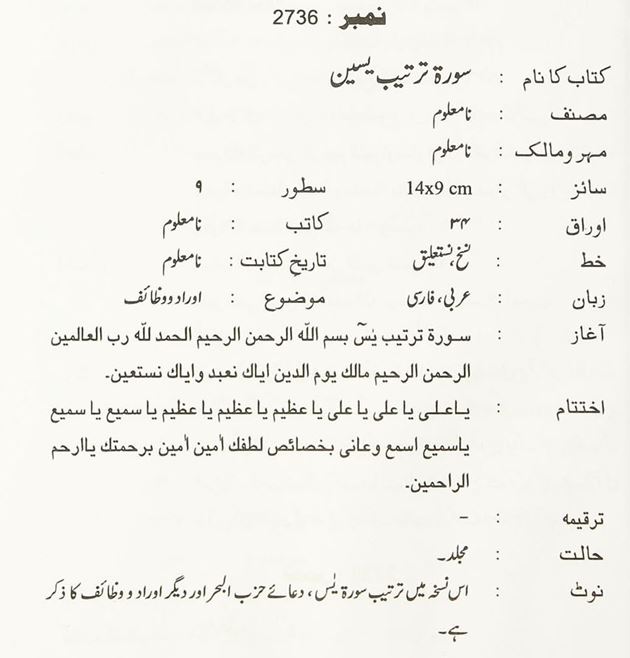 نمبر : 2736
کتاب کا نام : سورۃ ترتیب یسین
مصنف : نامعلوم
مہر و مالک : نامعلوم
سائز : 14x9 cm سطور : ۹
اوراق : ۳۴ کاتب : نامعلوم
خط : نسخ، نستعلیق تاریخِ کتابت : نامعلوم
زبان : عربی، فارسی موضوع : اوراد و وظائف
آغاز : سورة ترتیب یٰسٓ بسم اللّٰه الرحمن الرحیم الحمد للّٰه رب العالمین
الرحمن الرحیم مالك یوم الدین ایاك نعبد وایاك نستعین۔
اختتام : یاعلی یا علی یا علی یا عظیم یا عظیم یا عظیم یا سمیع یا سمیع
یاسمیع اسمع وعانی بخصائص لطفك اٰمین اٰمین برحمتك یاارحم
الراحمین۔
ترقیمہ : –
حالت : مجلد۔
نوٹ : اس نسخہ میں ترتیب سورۃ یٰس، دعائے حزب البحر اور دیگر اوراد و وظائف کا ذکر
ہے۔